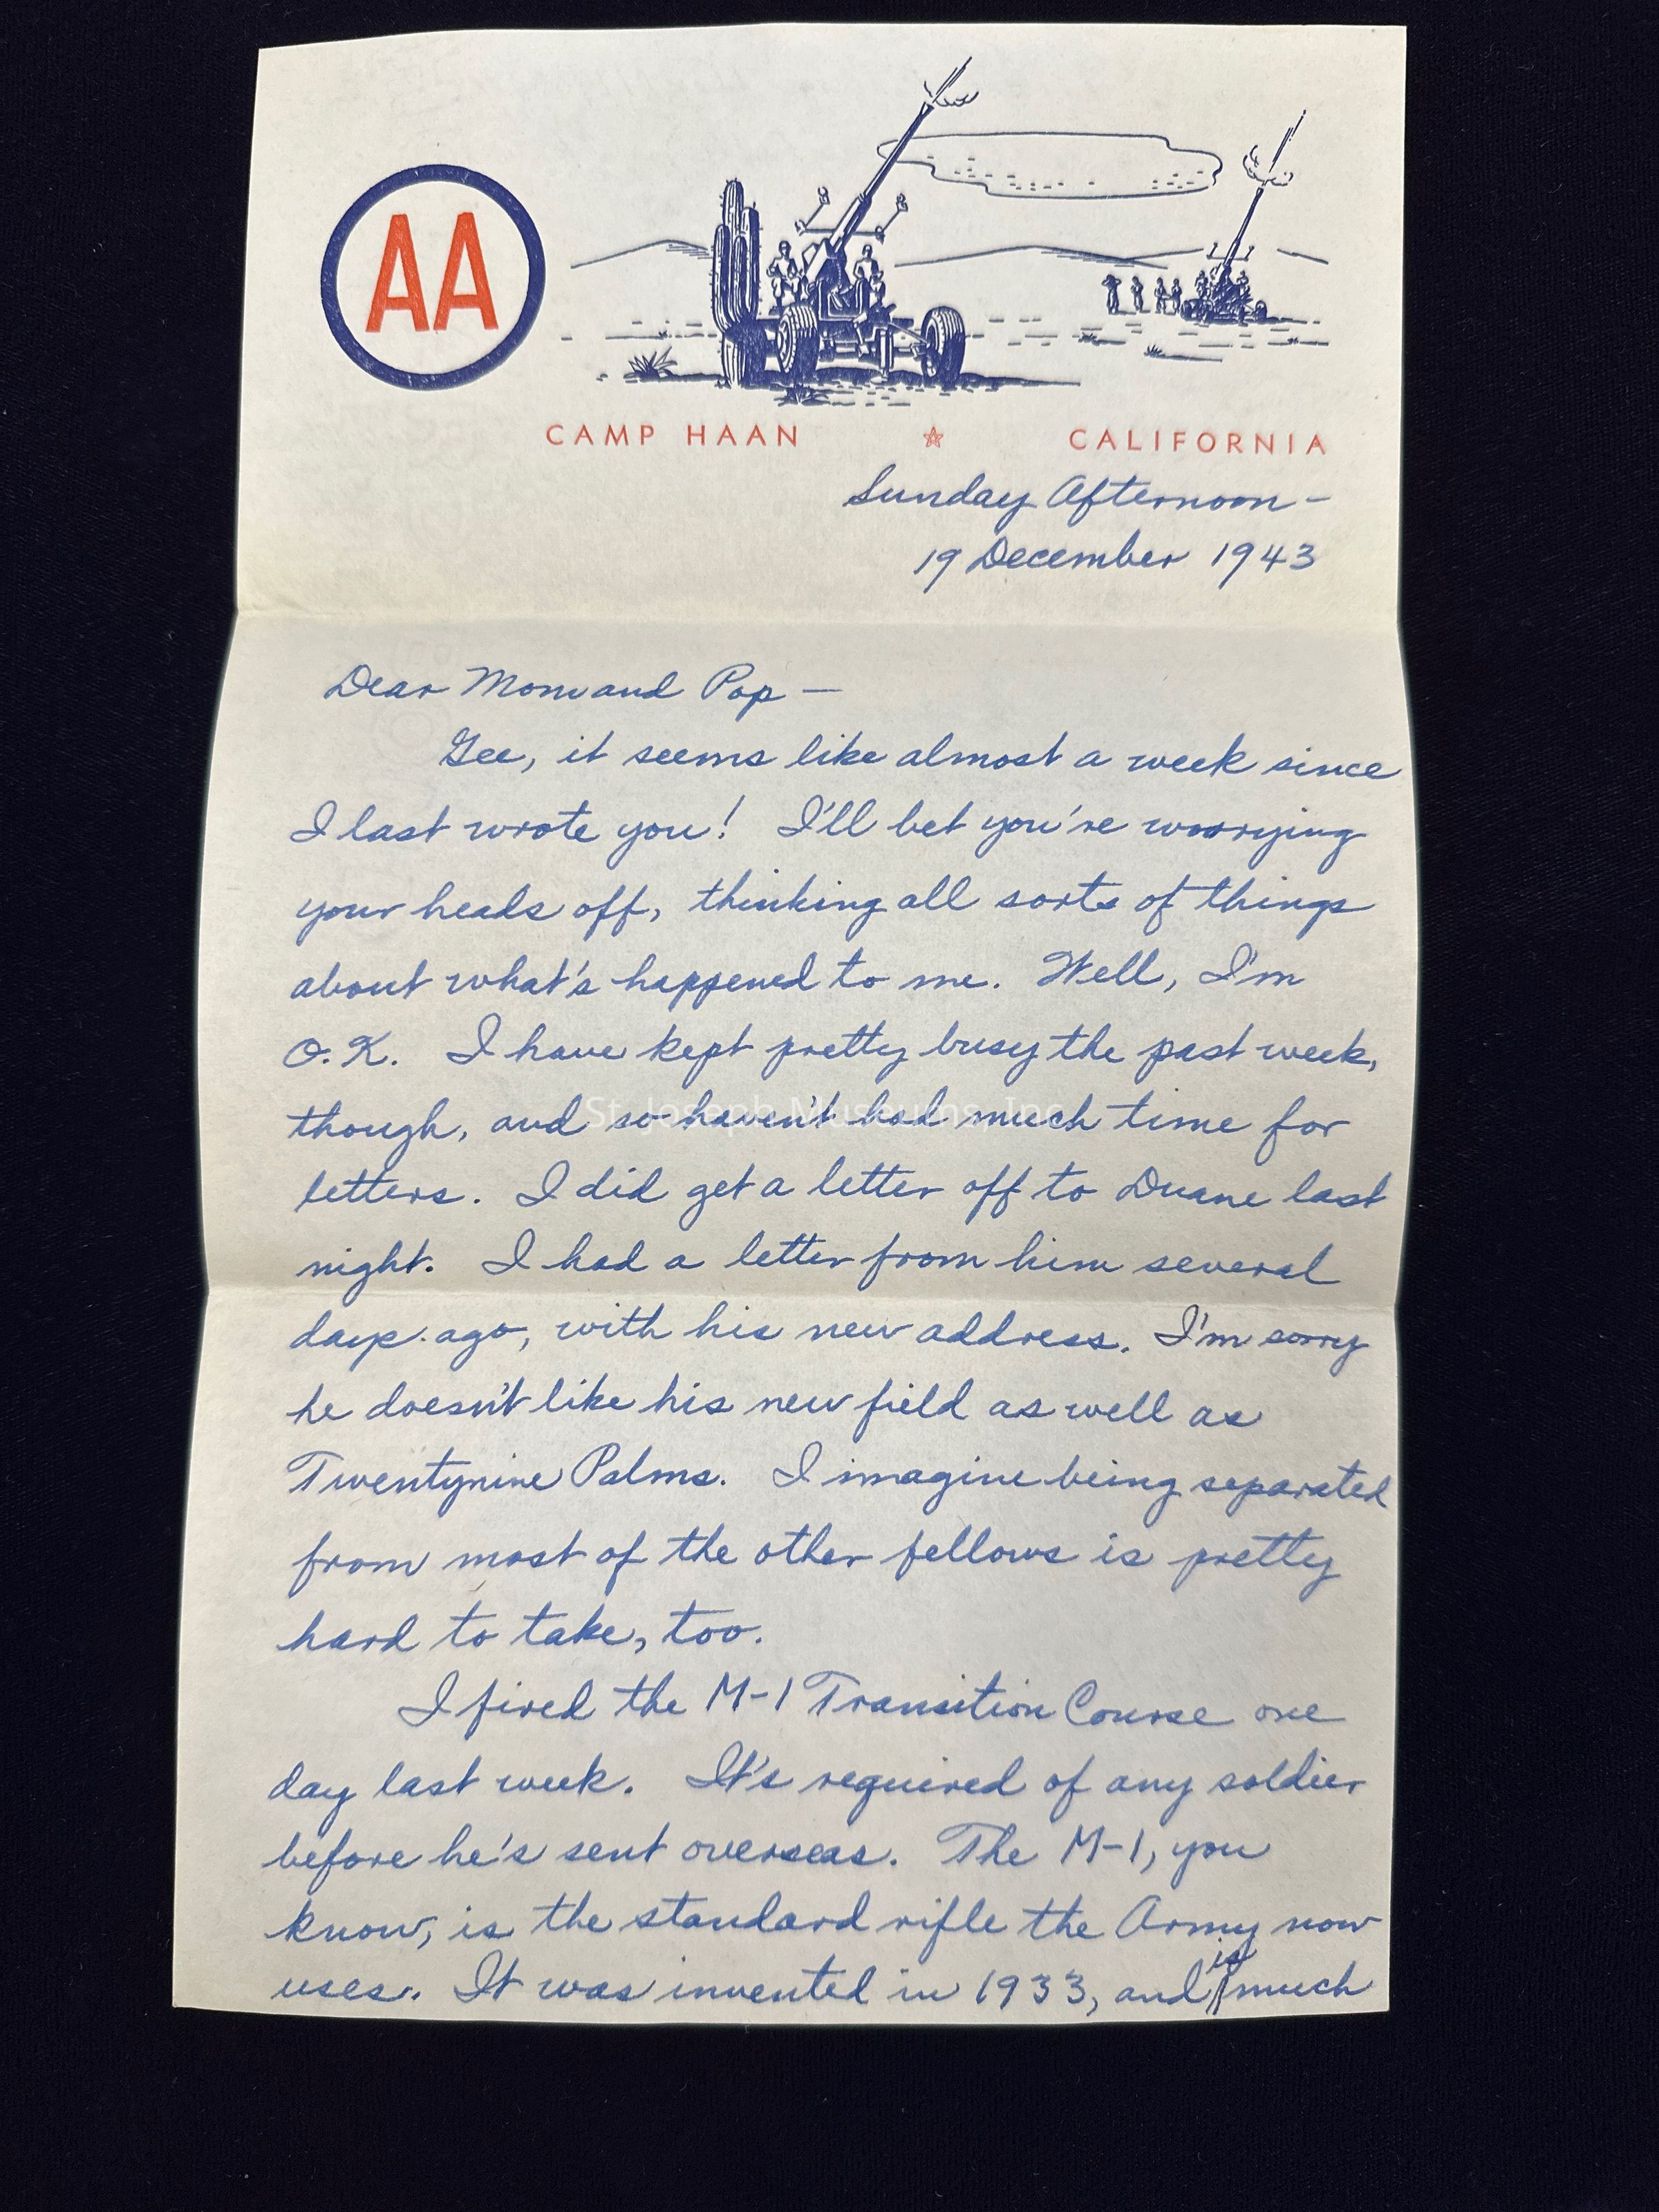 AA
CAMP HAAN ☆ CALIFORNIA
Sunday Afternoon –
19 December 1943
Dear Mom and Pop —
Gee, it seems like almost a week since
I last wrote you! I'll bet you're worrying
your heads off, thinking all sorts of things
about what's happened to me. Well, I'm
O.K. I have kept pretty busy the past week,
though, and so haven't had much time for
St. Joseph Museums, Inc.
letters. I did get a letter off to Duane last
night. I had a letter from him several
days ago, with his new address. I'm sorry
he doesn't like his new field as well as
Twentynine Palms. I imagine being separated
from most of the other fellows is pretty
hard to take, too.
I fired the M-1 Transition Course one
day last week. It's required of any soldier
before he's sent overseas. The M-1, you
know, is the standard rifle the Army now
uses. It was invented in 1933, and is much